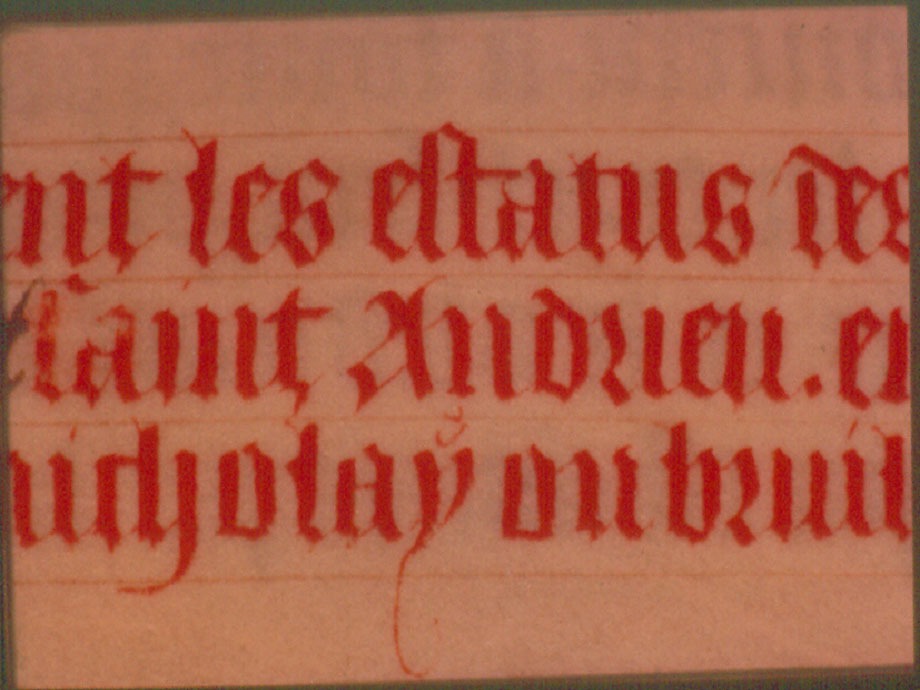 ent les estatus des
saint Andrieu. et
nicholay ou bruil